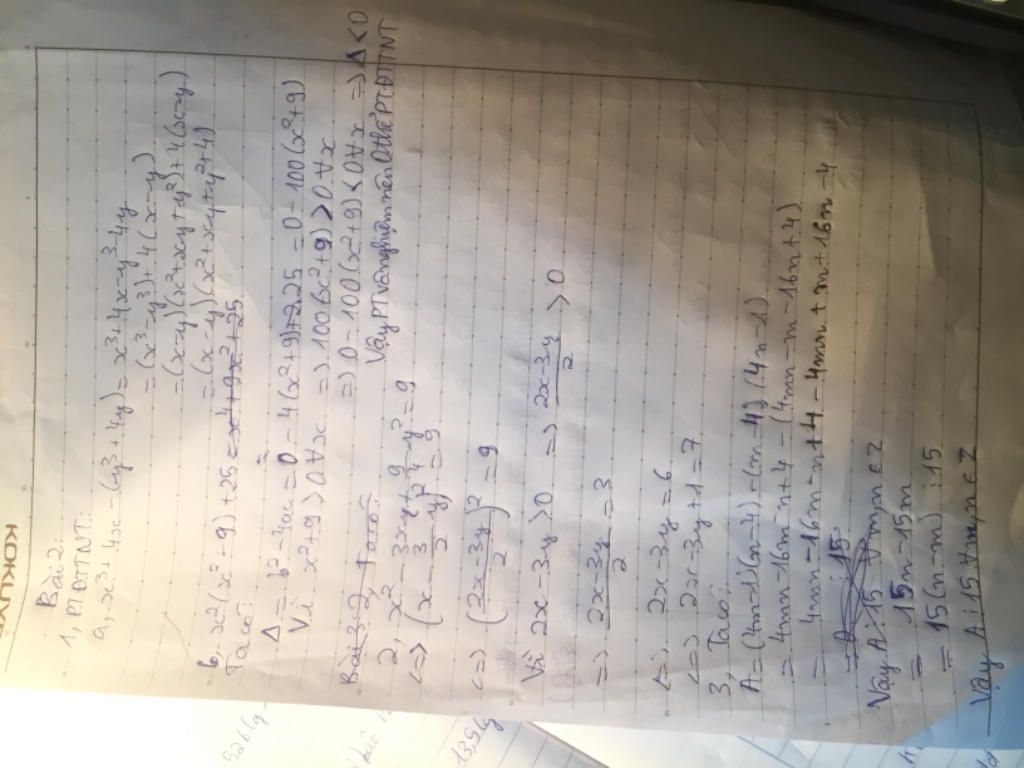 KOKUYO
Bài 2:
1, PTĐTTNT:
a, x³ + 4x - (y³ + 4y) = x³ + 4x - y³ - 4y
= (x³ - y³) + 4(x - y)
= (x - y)(x² + xy + y²) + 4(x - y)
= (x - y)(x² + xy + y² + 4)
b, x²(x² + 9) + 25 = x⁴ + 9x² + 25
Ta có:
Δ = b² - 4ac = 0 - 4(x² + 9).25 = 0 - 100(x² + 9)
Vì x² + 9 > 0 ∀x => 100(x² + 9) > 0 ∀x
=> 0 - 100(x² + 9) < 0 ∀x => Δ < 0
Vậy PT vô nghiệm nên 0 thể PTĐTTNT
Bài 3: 2, Ta có:
2, x² - 3xy + 9/4 y² = 9
<=> (x - 3/2 y)² = 9
<=> (2x - 3y / 2)² = 9
Vì 2x - 3y > 0 => 2x - 3y / 2 > 0
=> 2x - 3y / 2 = 3
<=> 2x - 3y = 6
<=> 2x - 3y + 1 = 7
3, Ta có:
A = (4m - 1)(n - 4) - (m - 4)(4n - 1)
= 4mn - 16m - n + 4 - (4mn - m - 16n + 4)
= 4mn - 16m - n + 4 - 4mn + m + 16n - 4
Vậy A ⋮ 15 ∀m, n ∈ Z
= 15n - 15m
= 15(n - m) ⋮ 15
Vậy A ⋮ 15 ∀m, n ∈ Z